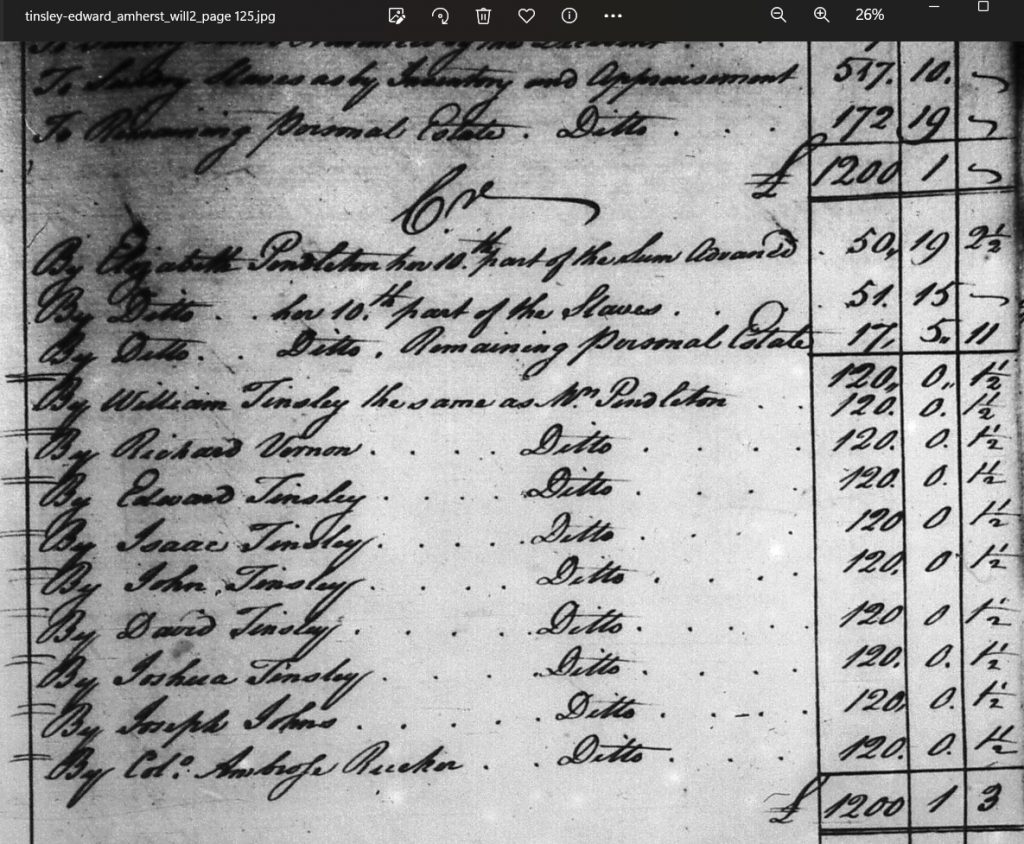 tinsley-edward_amherst_will2_page 125.jpg 26%
To Sundry Slaves as by Inventory and Appraisement 517. 10. "
To Remaining personal Estate. Ditto . . . 172 19 "
£ 1200 1 "
Cr
By Elizabeth Pendleton her 10.th part of the Sum Advanced . 50, 19 2½
By Ditto . . her 10.th part of the Slaves . . . 51. 15 "
By Ditto . . Ditto . Remaining personal Estate 17, 5,, 11
120,, 0,, 1½
By William Tinsley the same as Mrs Pendleton . . 120. 0. 1½
By Richard Vernon . . . . Ditto . . . . 120. 0. 1½
By Edward Tinsley . . . . Ditto . . . . 120. 0. 1½
By Isaac Tinsley . . . . Ditto . . . . 120 0 1½
By John Tinsley . . . . Ditto . . . . 120, 0 1½
By David Tinsley . . . . Ditto . . . . 120 0 1½
By Joshua Tinsley . . . . Ditto . . . . 120. 0. 1½
By Joseph Johns . . . . Ditto . . . . 120, 0. 1½
By Colo. Ambrose Rucker . . Ditto . . . 120. 0. 1½
£ 1200 1 3